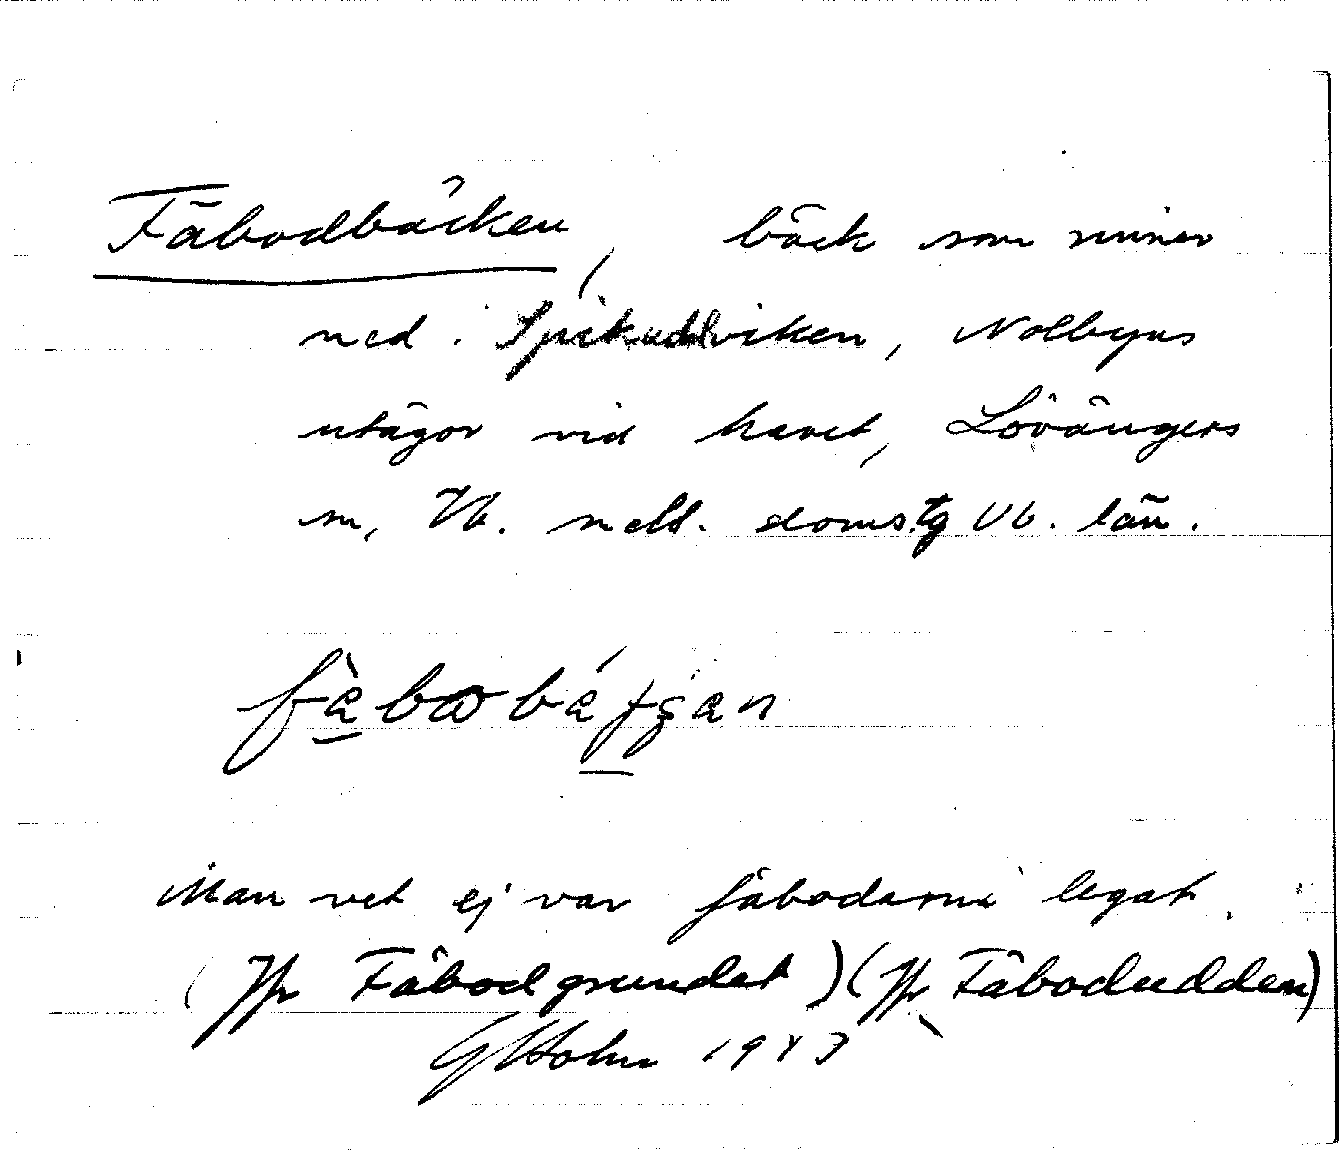 Fäbodbäcken, bäck som rinner
ned i Spikuddviken, Nolbyns
utägor vid havet, Lövångers
sn, Vb. mell. doms.tg Vb. län.
Man vet ej var fäbodarna legat.
(Jfr Fäbodgrundet) (Jfr Fäbodudden)
Holm 1943